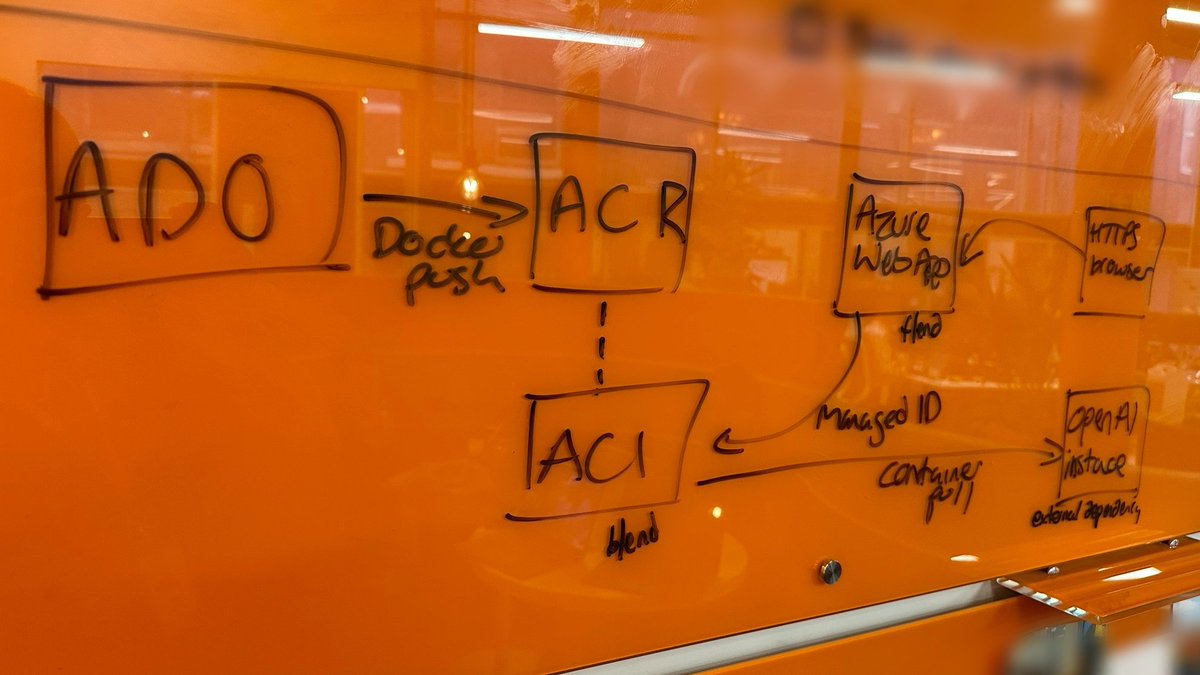 ADO
Docker
push
ACR
Azure
WebApp
f/end
HTTPS
browser
ACI
b/end
Managed ID
container
pull
OpenAI
instace
external dependency